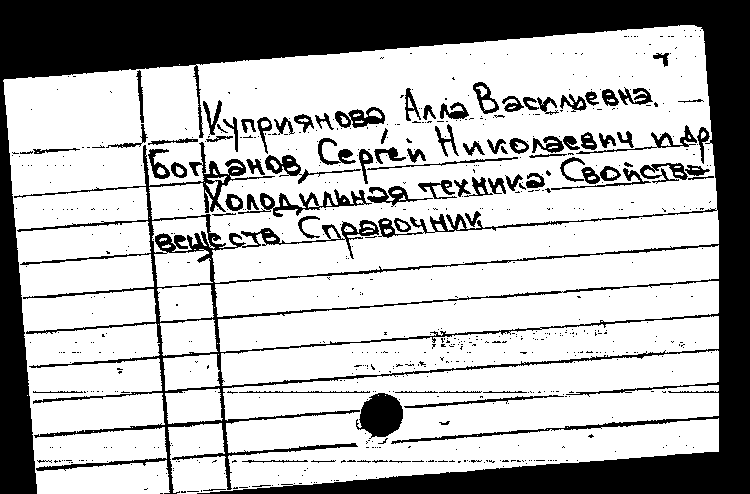 Куприянова Алла Васильевна.
Богданов, Сергей Николаевич и др
Холодильная техника: Свойства
веществ. Справочник.